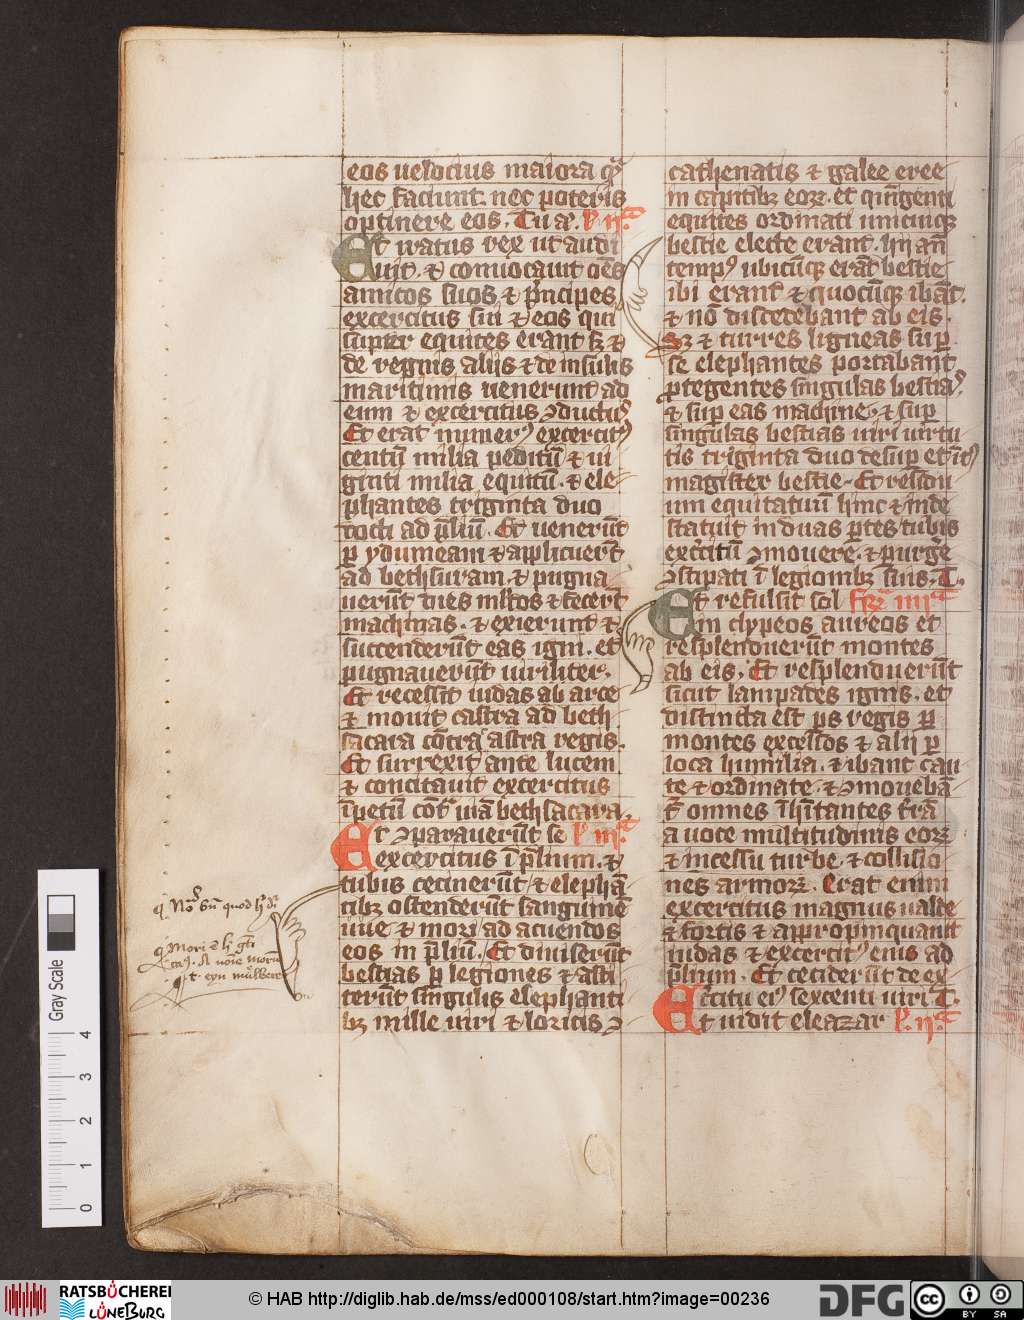 eos uelocius maiora qͣ
hec faciunt. nec poteris
optinere eos. Tu a.
Et iratus rex ut audi
uit. ⁊ conuocauit oēs
amicos suos ⁊ pͥncipes
excercitus sui ⁊ eos qui
super equites erant
de regnis alijs ⁊ de insulis
maritimis uenerunt ad
eum ⁊ excercitus ꝯductꝰ
Et erat numerꝰ excercitꝰ
centū milia peditū ⁊ ui
ginti milia equitū. ⁊ ele
phantes triginta duo
docti ad p̄liū. Et uenerūt
ꝑ ydumeam ⁊ applicuerūt
ad bethsuram. ⁊ pugna
uerūt dies mltos ⁊ fecerūt
machinas. ⁊ exierunt ⁊
succenderūt eas igni. et
pugnauerūt uiriliter.
Et recessit iudas ab arce
⁊ mouit castra ad beth
sacara cōtra castra regis.
Et surrexit ante lucem
⁊ concitauit excercitus
īpetū cōtͣ uiā bethsacara.
Et ꝯparauerūt se
excercitus ī p̄lium. ⁊
tubis cecinerūt ⁊ elephā
tibꝫ ostenderūt sanguinē
uue ⁊ mori ad acuendos
eos in p̄liū. Et diuiserūt
bestias ꝑ legiones ⁊ asti
terūt singulis elephanti
bꝫ mille uiri ⁊ loricis ꝯ
cathenatis ⁊ galee eree
in capitibꝫ eoꝝ. et quīgenti
equites ordinati unicuiqꝫ
bestie electe erant. hij an̄
tempꝰ ubicūqꝫ erāt bestie
ibi erant ⁊ quocūqꝫ ibāt.
⁊ nō discedebant ab eis.
Sꝫ ⁊ turres ligneas suꝑ
se elephantes portabant
ꝓtegentes singulas bestiaꝰ.
⁊ suꝑ eas machine. ⁊ suꝑ
singulas bestias uiri uirtu
tis triginta duo desuꝑ et īt
magister bestie. Et residu
um equitatum hinc ⁊ inde
statuit in duas ꝑtes tubis
exc̄citū ꝯmouere. ⁊ ꝑurge
ꝯstipati ī legionibꝫ suis. T.
Et refulsit sol
in clypeos aureos et
resplenduerūt montes
ab eis. Et resplenduerūt
sicut lampades ignis. et
distincta est ꝑs regis ꝑ
montes excelsos ⁊ alij ꝑ
loca humilia. ⁊ ibant cau
te ⁊ ordinate. ⁊ ꝯmouebā
t̄ omnes īhītantes trā
a uoce multitudinis eoꝝ
⁊ incessu turbe. ⁊ collisio
nes armoꝝ. Erat enim
excercitus magnus ualde
⁊ fortis ⁊ appropinquauit
iudas ⁊ excercitꝰ eius ad
p̄lium. Et ceciderūt de ex
c̄citu eiꝰ sexcenti uiri T.
Et uidit eleazar
Gray Scale
4
3
2
1
0
RATSBÜCHEREI
LÜNEBURG
© HAB http://diglib.hab.de/mss/ed000108/start.htm?image=00236
DFG
cc
BY SA